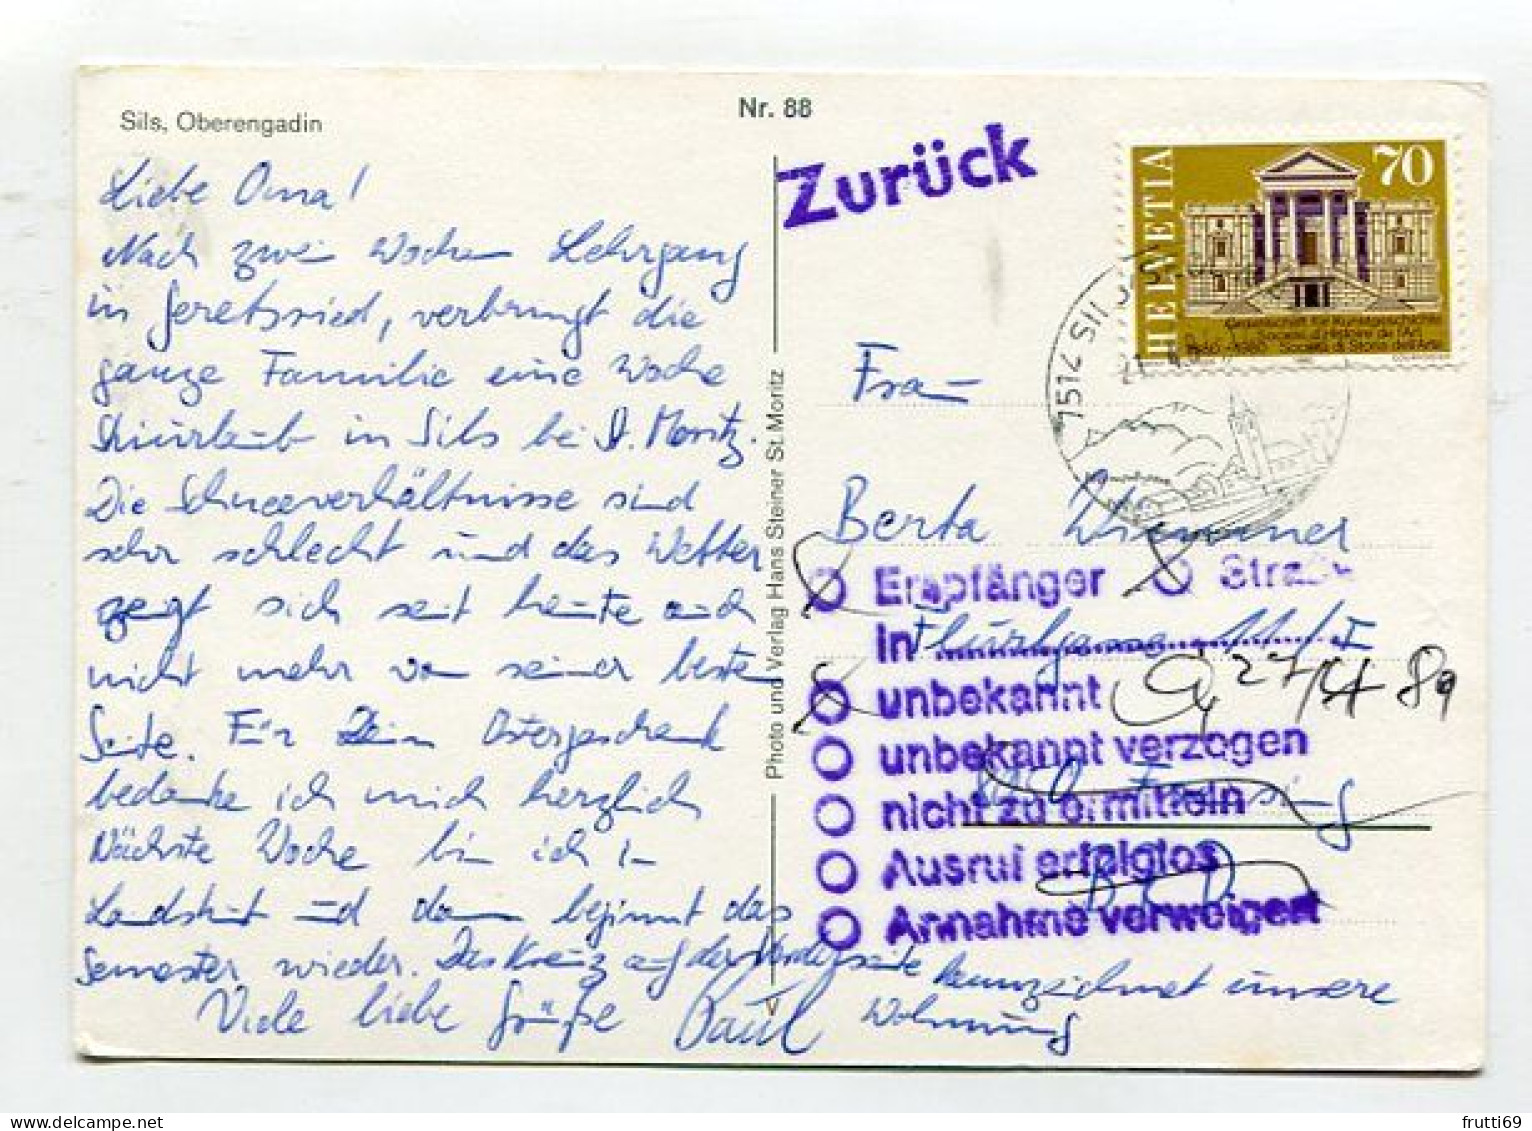 Sils, Oberengadin
Nr. 88
Zurück
HELVETIA
70
Gesellschaft für Kunstgeschichte
Société d'Histoire de l'Art
1880-1980 Società di Storia dell'Arte
7514 SILS
Liebe Oma!
Nach zwei Wochen Lehrgang
in Geretsried, verbringt die
ganze Familie eine Woche
Skiurlaub in Sils bei St. Moritz.
Die Schneeverhältnisse sind
sehr schlecht und das Wetter
zeigt sich seit heute auch
nicht mehr von seiner besten
Seite. Für Dein Ostergeschenk
bedanke ich mich herzlich
Nächste Woche bin ich in
Landshut und dann beginnt das
Semester wieder. Das Kreuz auf der Vorderseite kennzeichnet unsere
Wohnung
Viele liebe Grüße Paul
Photo und Verlag Hans Steiner St. Moritz
Frau
Berta
Empfänger Straße
in
unbekannt
27/4 89
unbekannt verzogen
nicht zu ermitteln
Ausruf erfolglos
Annahme verweigert
BRD
frutti69